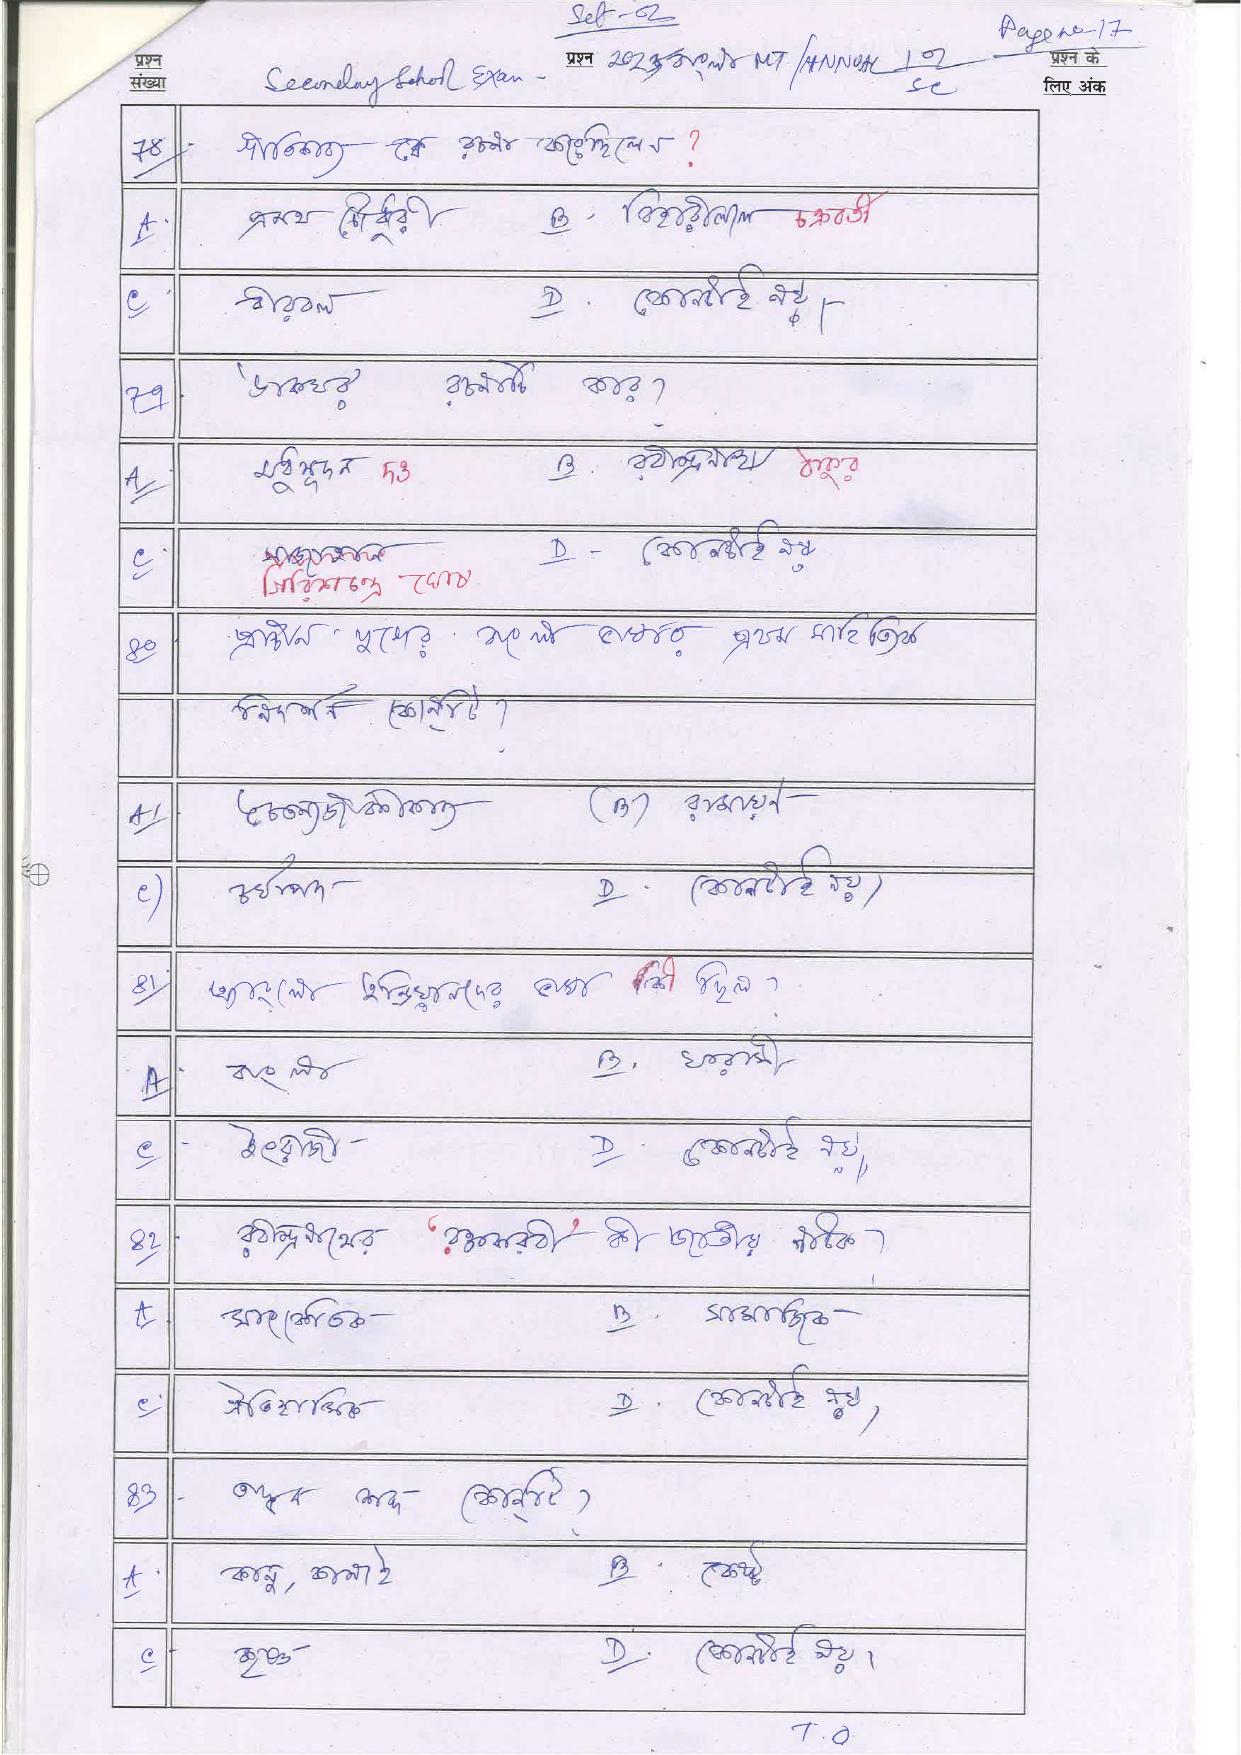 Set-02
Page no-17
प्रश्न
संख्या
Secondary School Exam -
प्रश्न
MT/ANNUAL
प्रश्न के
लिए अंक
78 কে রচনা করেছিলেন ?
A. প্রমথ চৌধুরী B. বিহারীলাল চক্রবর্তী
C. বীরবল D. কোনটাই নয়।
79. 'ডাকঘর' রচনাটি কার?
A. মধুসূদন দত্ত B. রবীন্দ্রনাথ ঠাকুর
C. D - কোনটাই নয়
গিরিশচন্দ্র ঘোষ
80 প্রাচীন যুগের বাংলা ভাষার প্রথম সাহিত্যিক
নিদর্শন কোন্‌টি?
A। (B) রামায়ণ
C) চর্যাপদ D. কোনটাই নয়।
81. ইন্ডিয়ানদের ভাষা কী ছিল?
A. বাংলা B. ফরাসী
C - ইংরাজী D. কোনটাই নয়।
82. রবীন্দ্রনাথের 'রক্তকরবী' কী জাতীয় নাটক?
A সাংকেতিক B. সামাজিক
C. ঐতিহাসিক D. কোনটাই নয়,
83 - তদ্ভব শব্দ কোন্‌টি?
A. কানু, কানাই B. কেষ্ট
C - কৃষ্ণ D. কোনটাই নয়।
T.O